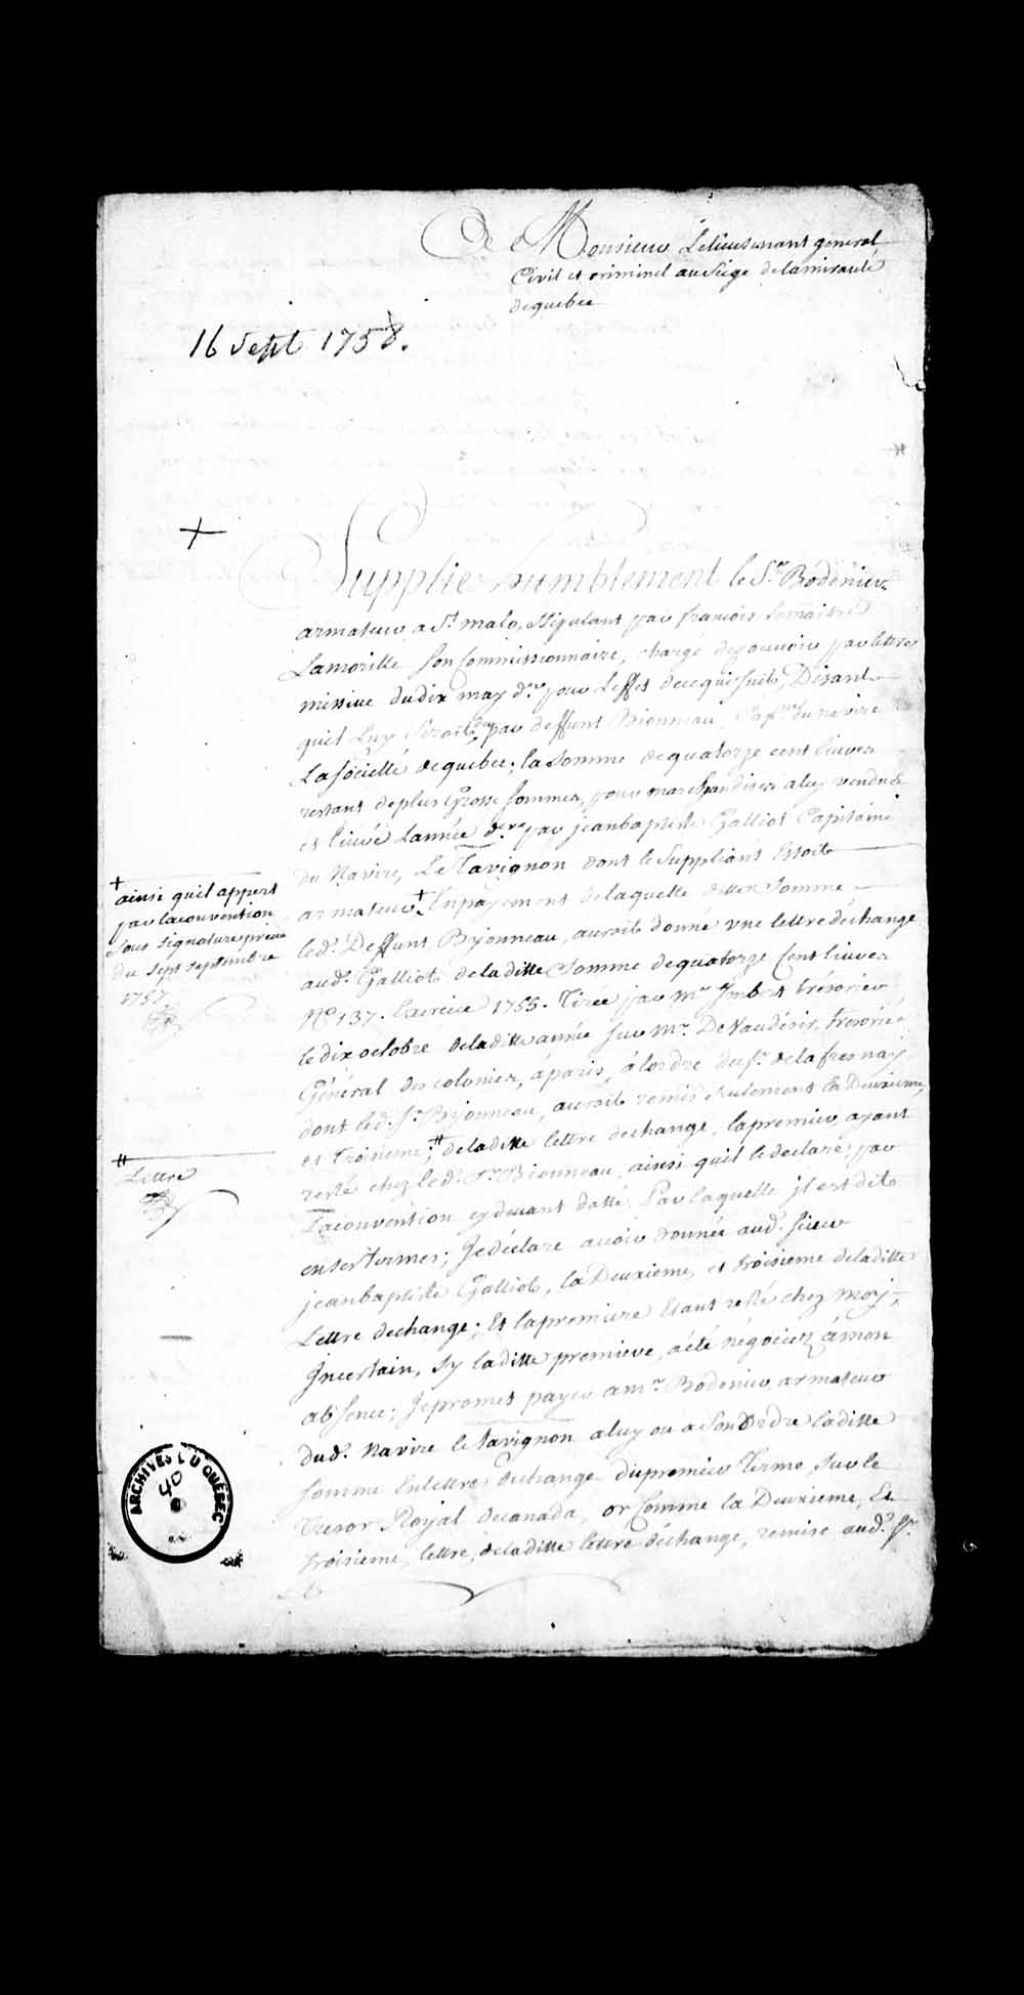 De Monsieur Le lieutenant general
Civil et criminel au Siege de lamirauté
de quebec
16 Sept 1758.
+
Supplie humblement le Sr. Bodenier
armateur a St. malo, stipulant par francois Lemaitre
Lamorille son Commissionnaire, chargé de pouvoir par lettre
missive du dix may der. pour Leffet de ce qui suit, Disant
quil Luy seroit du par deffunt Bionneau Capne. du navire
La Société de quebec; la Somme de quatorze cent livres
restant de plus Grosse Somme, pour marchandises a luy vendue
et livré Lannée der. par jean baptiste Galliot Capitaine
du Navire, Le Tavignon dont le Suppliant Estoit
armateur + En payement de laquelle ditte Somme
led. Deffunt Bijonneau, auroit donné une lettre déchange
aud. Galliot de la ditte Somme de quatorze Cent livres
No. 137. Exercice 1755. Tirée par Mr. Imbert trésorier
le dix octobre de la ditte année sur Mr. De Vaudésir, trésorier
Général des colonies, á paris, á lordre du Sr. de la fresnay
dont led. Sr. Bijonneau, auroit remis seulement la Deuxieme,
et Troisieme, # de la ditte lettre déchange, la premiere ayant
resté chez led. Sr. Bionneau, ainsi quil le declare, par
La convention cy devant datté, Par laquelle jl est dit
en ses termes; Je déclare avoir donnée aud. sieur
jean baptiste Galliot, la Deuxieme, et troisieme de la ditte
Lettre dechange; Et la premiere Etant resté chez moy,
Jncertain, sy la ditte premiere, a été négociez á mon
absence; Je promet payer a mr. Bodenier armateur
dud. Navire le Tavignon a luy ou a Son Ordre la ditte
somme En lettres dechange du premier Terme, sur le
Tresor Royal de canada, or Comme la Deuxieme, Et
troisieme, lettre, de la ditte lettre déchange, remise aud. Sr.
+
ainsi quil appert
par la convention
sous signature privée
du sept septembre
1757
#
Lettre
ARCHIVES DU QUÉBEC
40